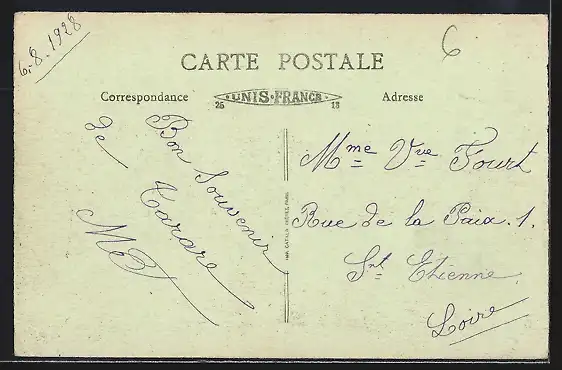 6-8-1928
6
CARTE POSTALE
Correspondance
UNIS-FRANCE
25 13
Adresse
Bon Souvenir
de Tarare
Mme Vve Fourt
Rue de la Paix. 1.
St Etienne
Loire
IMP. CATALA FRÈRES, PARIS